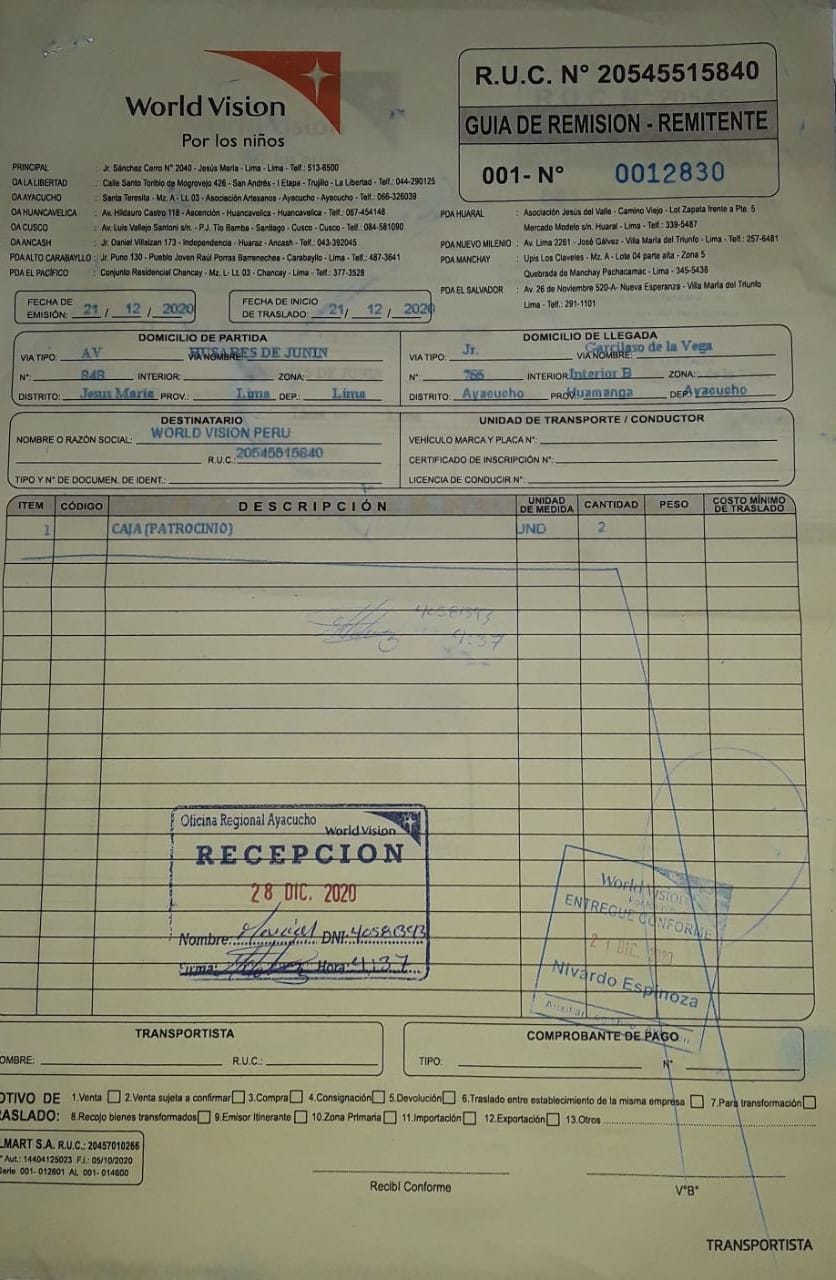 World Vision
Por los niños
R.U.C. N° 20545515840
GUIA DE REMISION - REMITENTE
001- N° 0012830
PRINCIPAL : Jr. Sánchez Cerro N° 2040 - Jesús María - Lima - Lima - Telf.: 513-6500
OA LA LIBERTAD : Calle Santo Toribio de Mogrovejo 426 - San Andrés - I Etapa - Trujillo - La Libertad - Telf.: 044-290125
OA AYACUCHO : Santa Teresita - Mz. A - Lt. 03 - Asociación Artesanos - Ayacucho - Ayacucho - Telf.: 066-326039
OA HUANCAVELICA : Av. Hildauro Castro 118 - Ascención - Huancavelica - Huancavelica - Telf.: 067-454148
OA CUSCO : Av. Luis Vallejo Santoni s/n. - P.J. Tío Bamba - Santiago - Cusco - Cusco - Telf.: 084-581090
OA ANCASH : Jr. Daniel Villaizan 173 - Independencia - Huaraz - Ancash - Telf.: 043-392045
PDA ALTO CARABAYLLO : Jr. Puno 130 - Pueblo Joven Raúl Porras Barrenechea - Carabayllo - Lima - Telf.: 487-3641
OA EL PACÍFICO : Conjunto Residencial Chancay - Mz. L- Lt. 03 - Chancay - Lima - Telf.: 377-3528
PDA HUARAL : Asociación Jesús del Valle - Camino Viejo - Lot Zapata frente a Pte. 5
Mercado Modelo s/n. Huaral - Lima - Telf.: 339-5487
PDA NUEVO MILENIO : Av. Lima 2261 - José Gálvez - Villa María del Triunfo - Lima - Telf.: 257-6481
PDA MANCHAY : Upis Los Claveles - Mz. A - Lote 04 parte alta - Zona 5
Quebrada de Manchay Pachacamac - Lima - 345-5438
PDA EL SALVADOR : Av. 26 de Noviembre 520-A- Nueva Esperanza - Villa María del Triunfo
Lima - Telf.: 291-1101
FECHA DE EMISIÓN: 21 / 12 / 2020
FECHA DE INICIO DE TRASLADO: 21 / 12 / 2020
DOMICILIO DE PARTIDA
VIA TIPO: AV VIA NOMBRE: HUSARES DE JUNIN
N°: 848 INTERIOR: ZONA:
DISTRITO: Jesus Maria PROV.: Lima DEP.: Lima
DOMICILIO DE LLEGADA
VIA TIPO: Jr. VIA NOMBRE: Garcilaso de la Vega
N°: 766 INTERIOR: Interior B ZONA:
DISTRITO: Ayacucho PROV. Huamanga DEP. Ayacucho
DESTINATARIO
NOMBRE O RAZÓN SOCIAL: WORLD VISION PERU
R.U.C.: 20545515840
TIPO Y N° DE DOCUMEN. DE IDENT.:
UNIDAD DE TRANSPORTE / CONDUCTOR
VEHÍCULO MARCA Y PLACA N°:
CERTIFICADO DE INSCRIPCIÓN N°:
LICENCIA DE CONDUCIR N°:
ITEM CÓDIGO DESCRIPCIÓN UNIDAD DE MEDIDA CANTIDAD PESO COSTO MÍNIMO DE TRASLADO
1 CAJA (PATROCINIO) UND 2
40581393
4:37
Oficina Regional Ayacucho
World Vision
RECEPCION
28 DIC. 2020
Nombre: DNI: 40581393
Firma: Hora: 4:37
World Vision
ENTREGUE CONFORME
21 DIC. 2020
Nivardo Espinoza
TRANSPORTISTA
OMBRE: R.U.C.:
COMPROBANTE DE PAGO
TIPO: N°
OTIVO DE 1.Venta 2.Venta sujeta a confirmar 3.Compra 4.Consignación 5.Devolución 6.Traslado entre establecimiento de la misma empresa 7.Para transformación
RASLADO: 8.Recojo bienes transformados 9.Emisor Itinerante 10.Zona Primaria 11.Importación 12.Exportación 13.Otros
LMART S.A. R.U.C.: 20457010266
° Aut.: 14404125023 F.I.: 05/10/2020
Serie 001- 012601 AL 001- 014600
Recibí Conforme
V°B°
TRANSPORTISTA